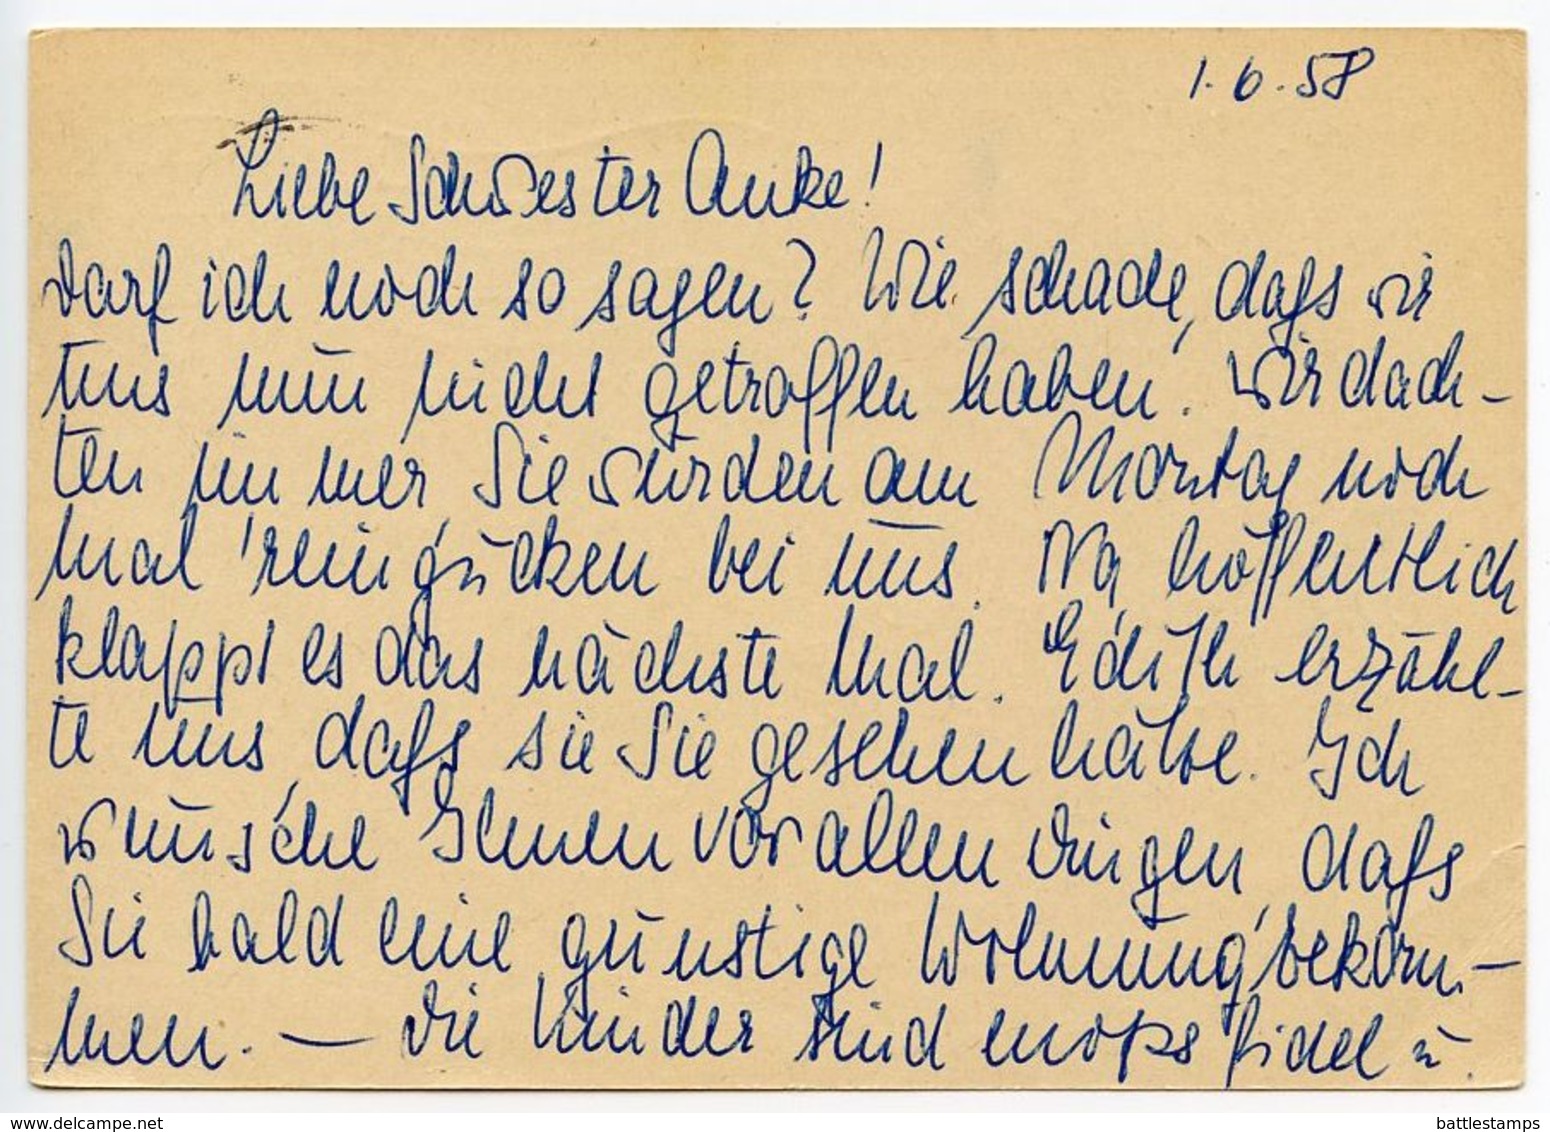 1.6.58
Liebe Schwester Anke!
Darf ich noch so sagen? Wie schade, daß wir
uns nun nicht getroffen haben. Wir dach-
ten immer Sie würden am Montag noch
mal 'reingucken bei uns. Na, hoffentlich
klappt es das nächste Mal. Edith erzähl-
te uns, daß sie Sie gesehen hätte. Ich
wünsche Ihnen vor allen Dingen, daß
Sie bald eine günstige Wohnung bekom-
men. — Die Kinder sind mopsfidel u.
delcampe.net
battlestamps